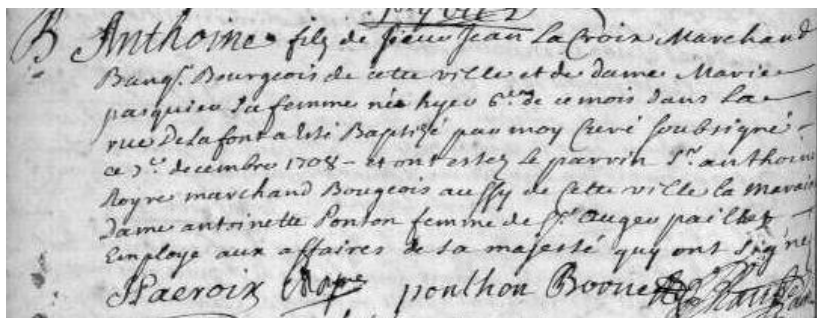 B Anthoine filz de sieur Jean La Croix Marchand
Banqr. Bourgeois de cette ville et de dame Marie
pasquier sa femme née hyer 6.eme de ce mois dans La
rue De la font a esté Baptizé par moy Curé soubsigné
ce 7.e decembre 1708 - et ont estez le parrin Sr. anthoine
Royre marchand Bougeois aussy de Cette ville la maraine
Dame antoinette Ponton femme de Sr. Auger paillet
Employe aux affaires de sa majesté quy ont signé
JLacroix Royre ponthon